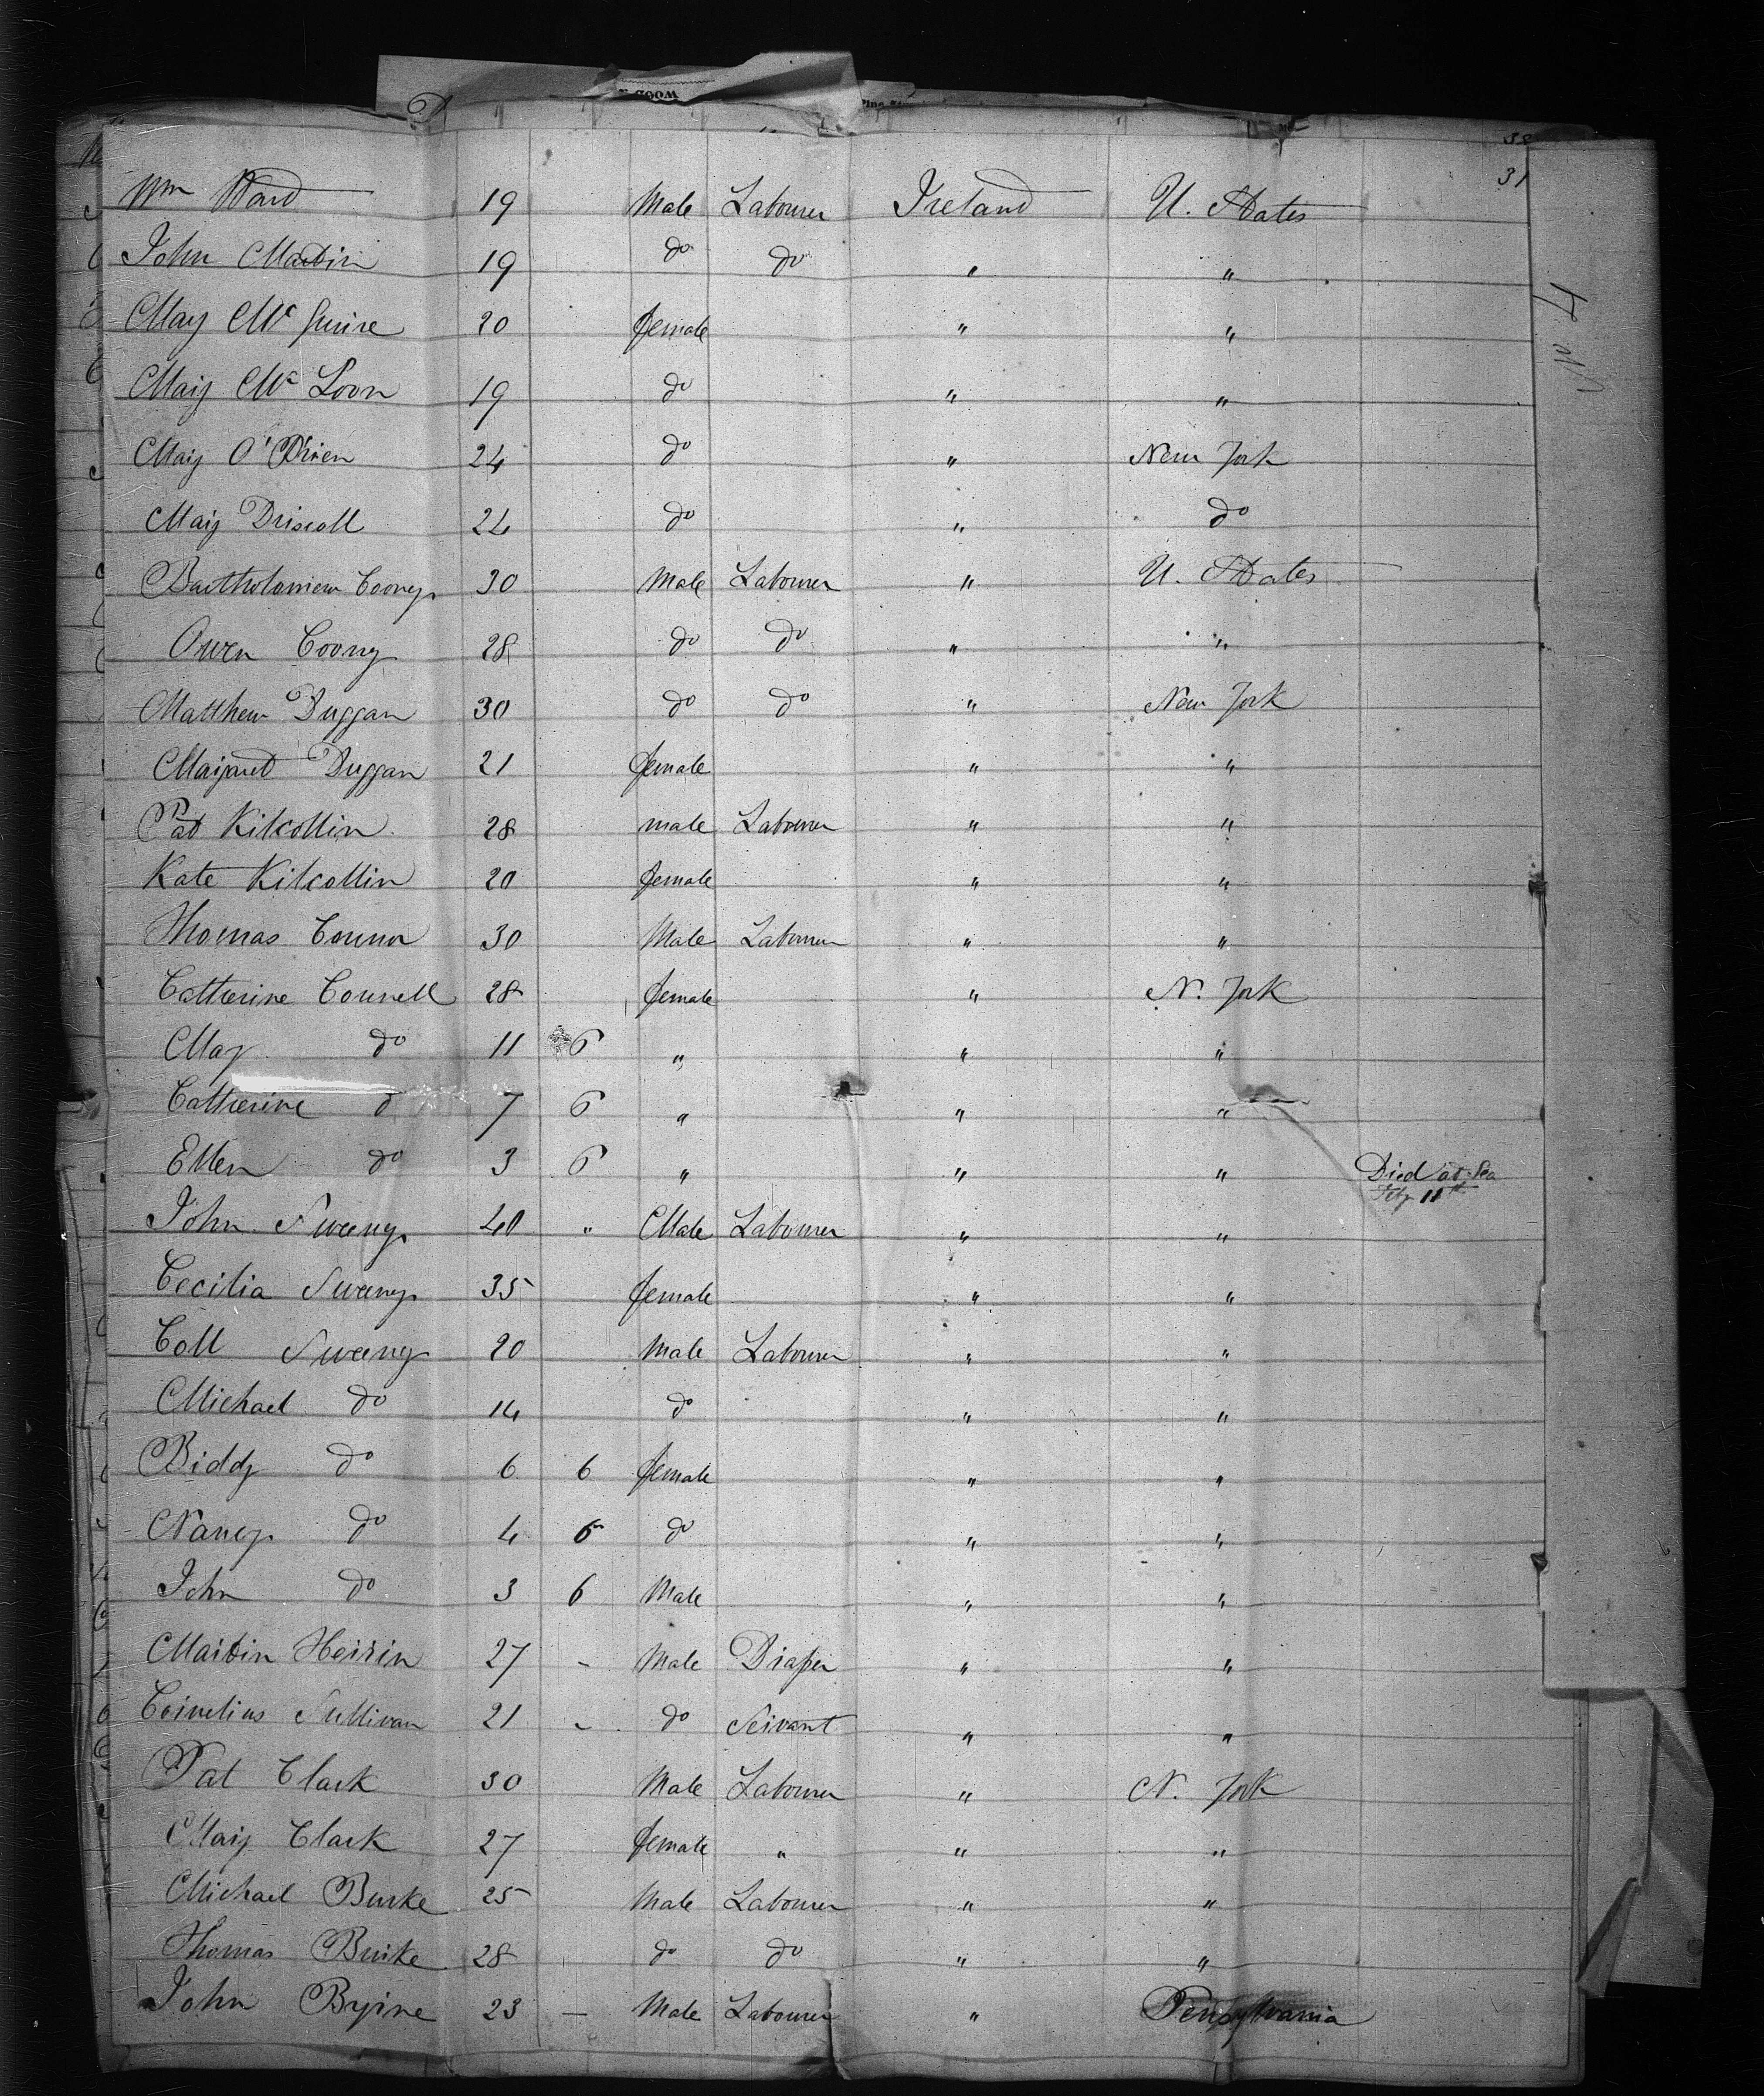 WOOD &
38
31
Wm Ward 19 Male Labourer Ireland U. States
John Martin 19 do do " "
Mary McGuire 20 female " "
Mary Mc Loon 19 do " "
Mary O'Brien 24 do " New York
Mary Driscoll 24 do " do
Bartholomew Coony 30 Male Labourer " U. States
Owen Coony 28 do do " "
Matthew Duggan 30 do do " New York
Margaret Duggan 21 female " "
Pat Kilcollin 28 male Labourer " "
Kate Kilcollin 20 female " "
Thomas Connor 30 Male Labourer " "
Catherine Connell 28 female " N. York
Mary do 11 6 " " "
Catherine d 7 6 " " "
Ellen do 3 6 " " " Died at Sea
Feby 11th
John Sweeny 40 " Male Labourer " "
Cecilia Sweeny 35 female " "
Coll Sweeny 20 Male Labourer " "
Michael do 14 do " "
Biddy do 6 6 female " "
Nancy do 4 6 do " "
John do 3 6 Male " "
Martin Heirin 27 - Male Draper " "
Cornelius Sullivan 21 - do Servant " "
Pat Clark 30 Male Labourer " N. York
Mary Clark 27 female " " "
Michael Burke 25 Male Labourer " "
Thomas Burke 28 do do " "
John Byrne 23 — Male Labourer " Pensylvania